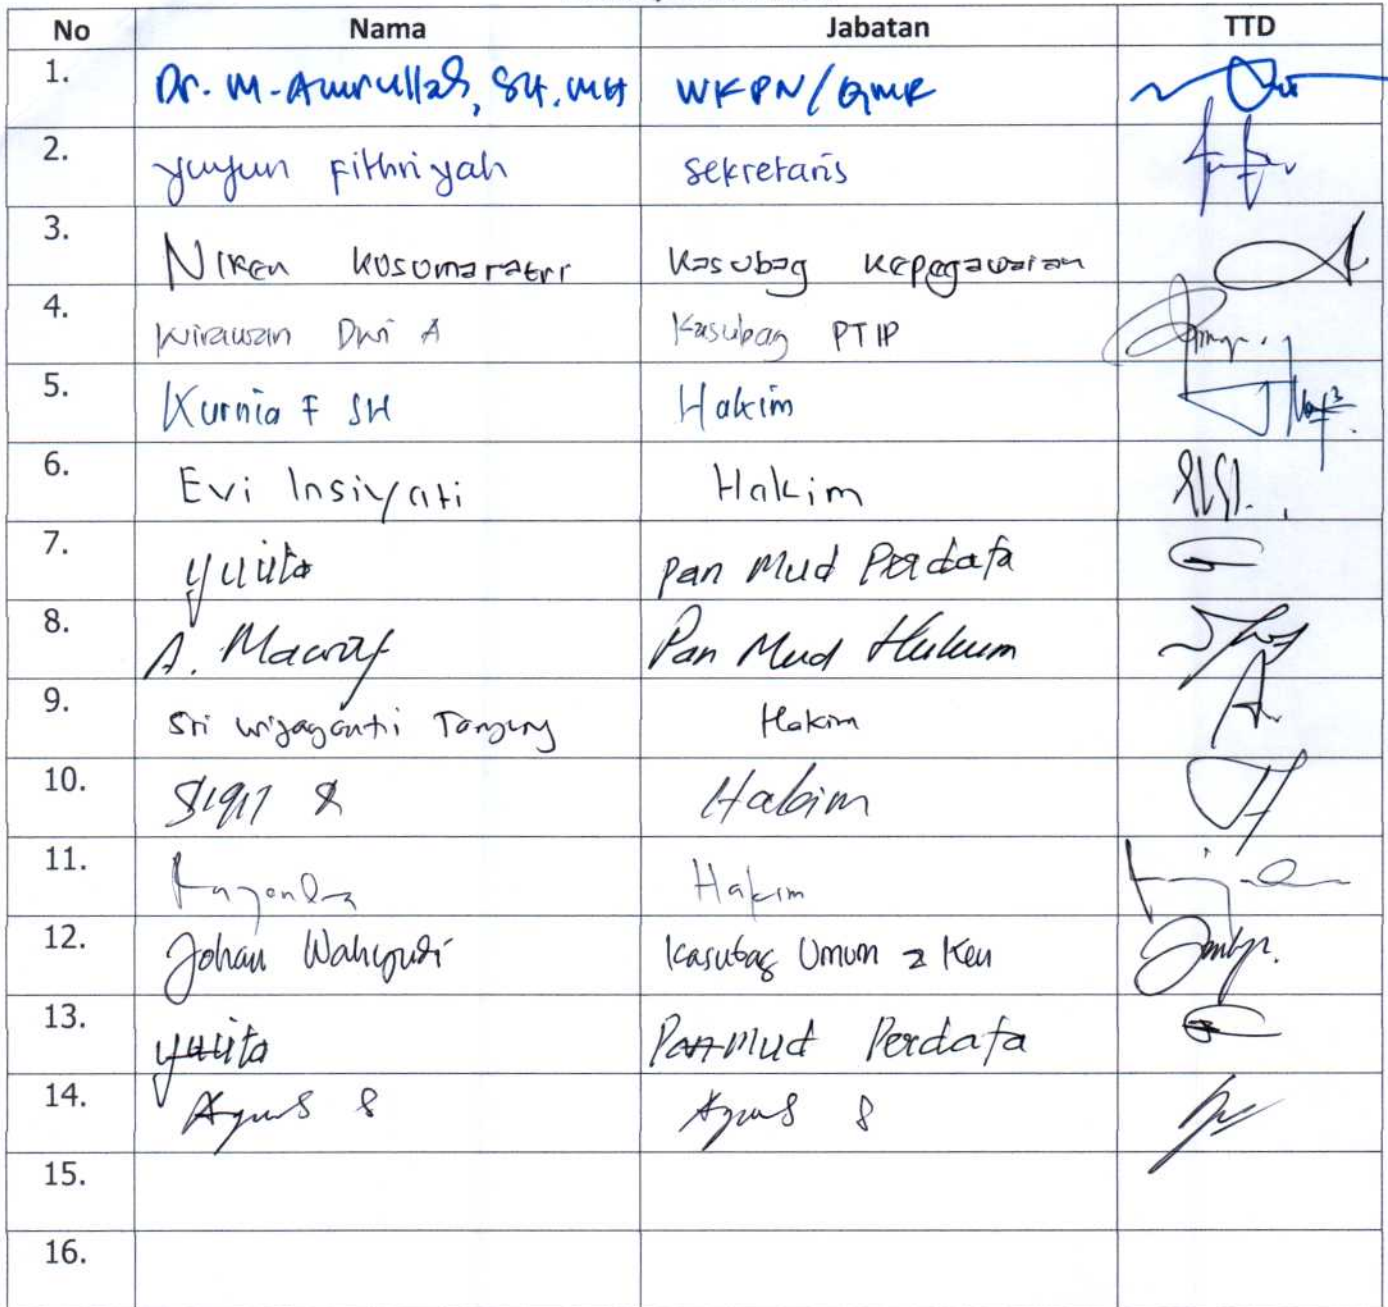 No Nama Jabatan TTD
1. Dr. M. Amrullah, SH. MH WKPN/QMR
2. yuyun Fithriyah sekretaris
3. Niken Kusumarastri Kasubag Kepegawaian
4. Wirawan Dwi A Kasubag PTIP
5. Kurnia F SH Hakim
6. Evi Insiyati Hakim
7. yunita Pan Mud Perdata
8. A. Macruf Pan Mud Hukum
9. Sri Wijayanti Tanjung Hakim
10. Sigit S Hakim
11. Hakim
12. Johan Wahyudi Kasubag Umum & Keu
13. yunita Pan Mud Perdata
14. Agus S Agus S
15.
16.